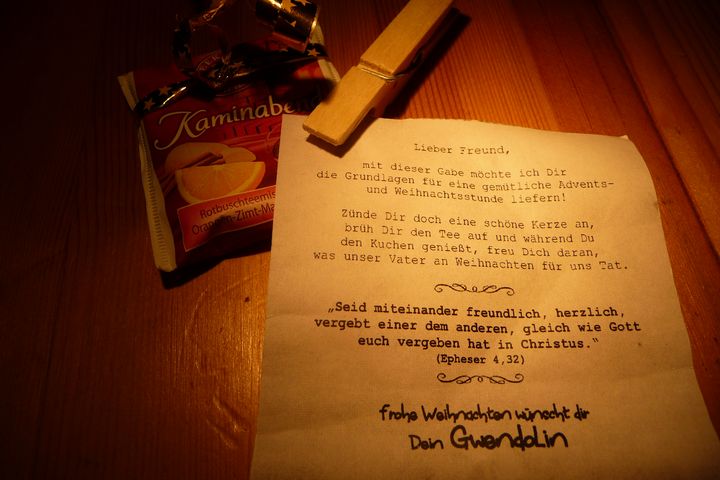 Kaminabend
Rotbuschteemis
Orangen-Zimt-Ma
Lieber Freund,
mit dieser Gabe möchte ich Dir
die Grundlagen für eine gemütliche Advents-
und Weihnachtsstunde liefern!
Zünde Dir doch eine schöne Kerze an,
brüh Dir den Tee auf und während Du
den Kuchen genießt, freu Dich daran,
was unser Vater an Weihnachten für uns Tat.
„Seid miteinander freundlich, herzlich,
vergebt einer dem anderen, gleich wie Gott
euch vergeben hat in Christus.“
(Epheser 4,32)
Frohe Weihnachten wünscht dir
Dein Gwendolin